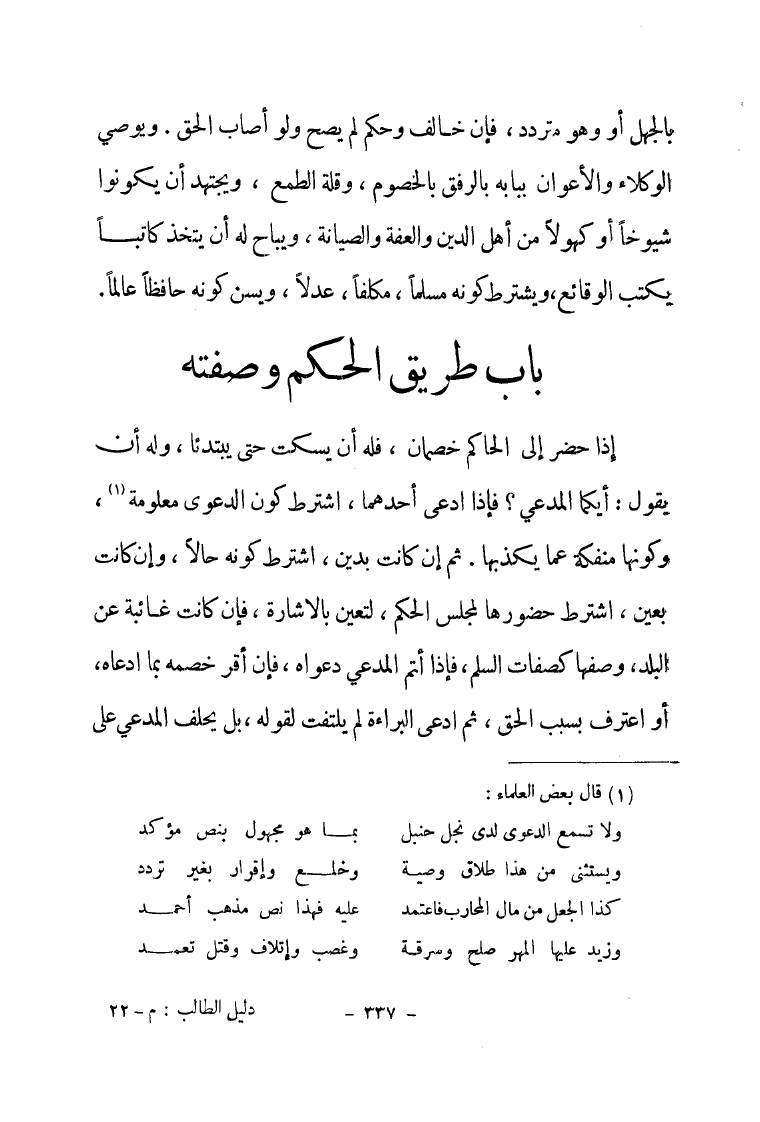 بالجهل أو وهو متردد ، فإن خالف وحكم لم يصح ولو أصاب الحق . ويوصي
الوكلاء والأعوان ببابه بالرفق بالخصوم ، وقلة الطمع ، ويجتهد أن يكونوا
شيوخاً أو كهولاً من أهل الدين والعفة والصيانة ، ويباح له أن يتخذ كاتبـــاً
يكتب الوقائع،ويشترط كونه مسلماً ، مكلفاً ، عدلاً ، ويسن كونه حافظاً عالماً.
باب طريق الحكم وصفته
إذا حضر إلى الحاكم خصمان ، فله أن يسكت حتى يبتدئا ، وله أن
يقول : أيكما المدعي ؟ فإذا ادعى أحدهما ، اشترط كون الدعوى معلومة (١) ،
وكونها منفكة عما يكذبها . ثم إن كانت بدين ، اشترط كونه حالاً ، وإن كانت
بعين ، اشترط حضورها لمجلس الحكم ، لتعين بالاشارة ، فإن كانت غـائبة عن
البلد، وصفها كصفات السلم، فإذا أتم المدعي دعواه ، فإن أقر خصمه بما ادعاه،
أو اعترف بسبب الحق ، ثم ادعى البراءة لم يلتفت لقوله ، بل يحلف المدعي على
(١) قال بعض العلماء :
ولا تسمع الدعوى لدى نجل حنبل بمـــا هو مجهول بنص مؤكد
ويستثنى من هذا طلاق وصيـة وخلـــع وإقرار بغير تردد
كذا الجعل من مال المحارب فاعتمد عليه فهذا نص مذهب أحمـــد
وزيد عليها المهر صلح وسرقـة وغصب وإتلاف وقتل تعمـــد
- ٣٣٧ - دليل الطالب : م - ٢٢